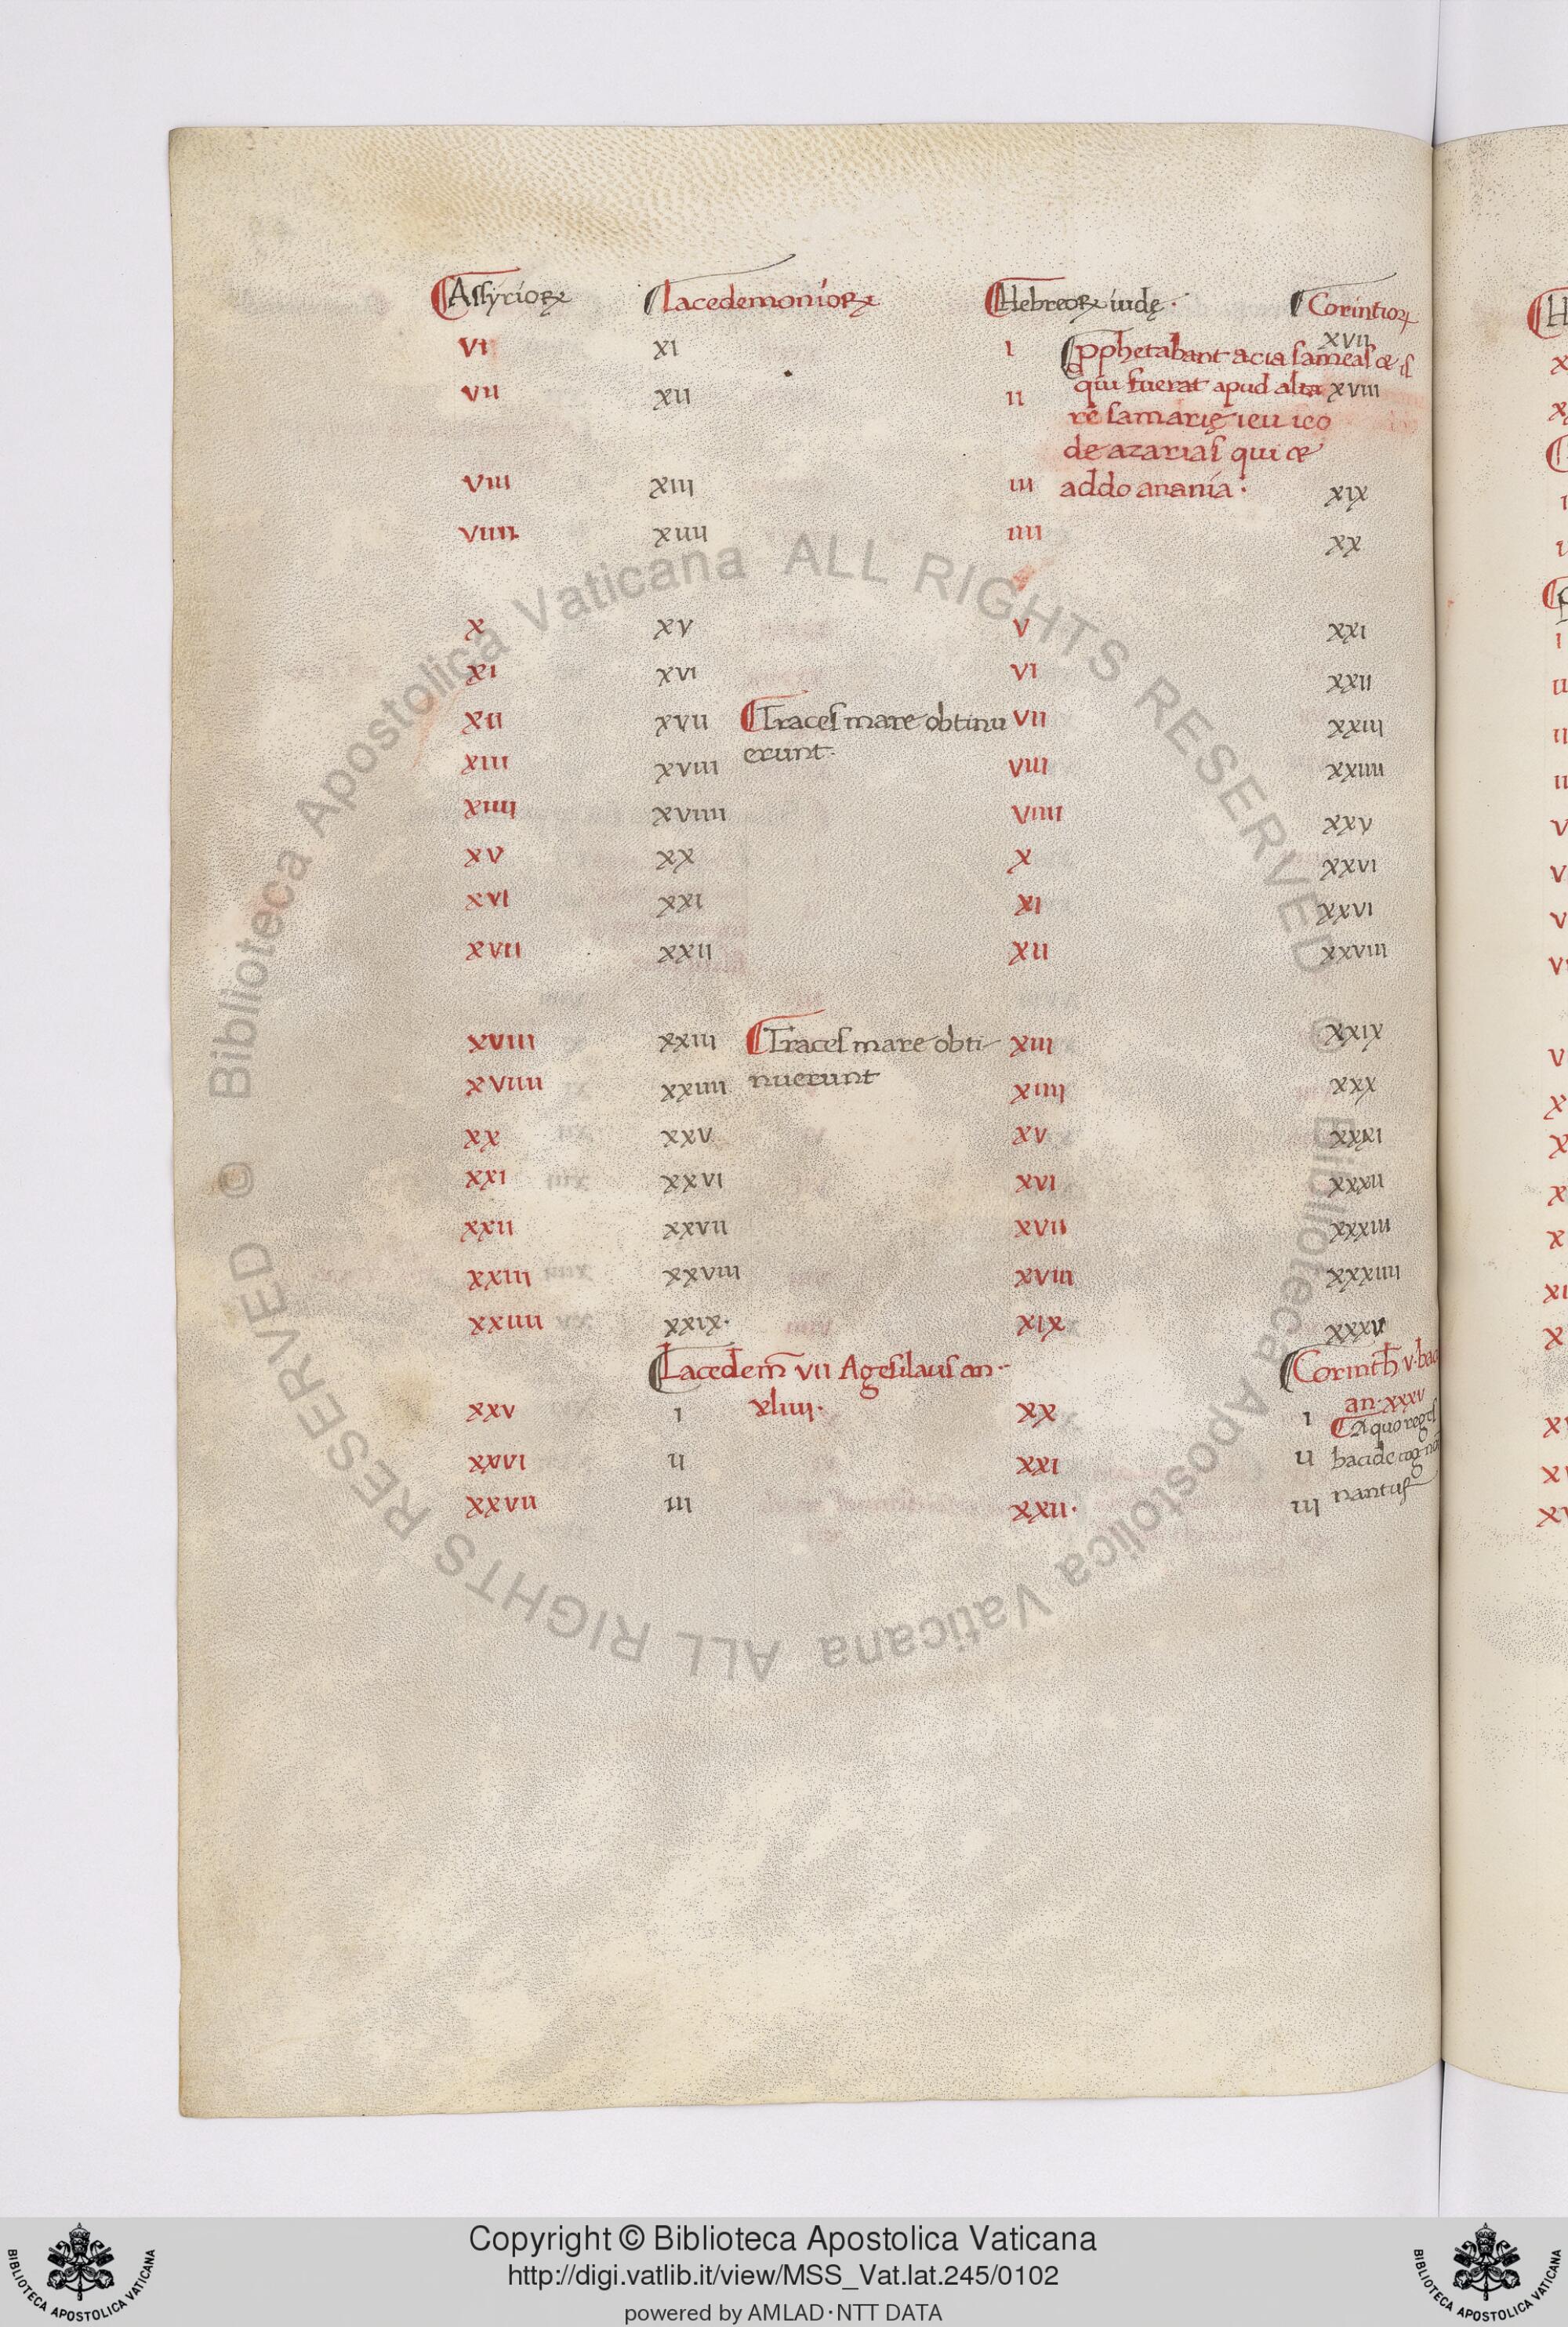 Assyrioꝝ lacedemonioꝝ Hebreoꝝ iudę · Corintioꝝ
VI XI I XVII
pphetabant acia sameas &
qui fuerat apud alta
VII XII II XVIII
re samarię ieu ico
de azarias qui &
VIII XIII III addo anania · XIX
VIIII XIIII IIII XX
X XV V XXI
XI XVI VI XXII
XII XVII Traces mare obtinu VII XXIII
erunt ·
XIII XVIII VIII XXIIII
XIIII XVIIII VIIII XXV
XV XX X XXVI
XVI XXI XI XXVI
XVII XXII XII XXVIII
XVIII XXIII Traces mare obti- XIII XXIX
nuerunt
XVIIII XXIIII XIIII XXX
XX XXV XV XXXI
XXI XXVI XVI XXXII
XXII XXVII XVII XXXIII
XXIII XXVIII XVIII XXXIIII
XXIIII XXIX · XIX XXXV
Lacedem̄ VII Agesilaus an · Corinth̄ v · bac
XXV I xliiii · XX I an · XXXV
A quo reges
XXVI II XXI II bacide
XXVII III XXII · III nantur
ALL RIGHTS RESERVED © Biblioteca Apostolica Vaticana ALL RIGHTS RESERVED © Biblioteca Apostolica Vaticana
BIBLIOTECA APOSTOLICA VATICANA
Copyright © Biblioteca Apostolica Vaticana
http://digi.vatlib.it/view/MSS_Vat.lat.245/0102
powered by AMLAD·NTT DATA
BIBLIOTECA APOSTOLICA VATICANA